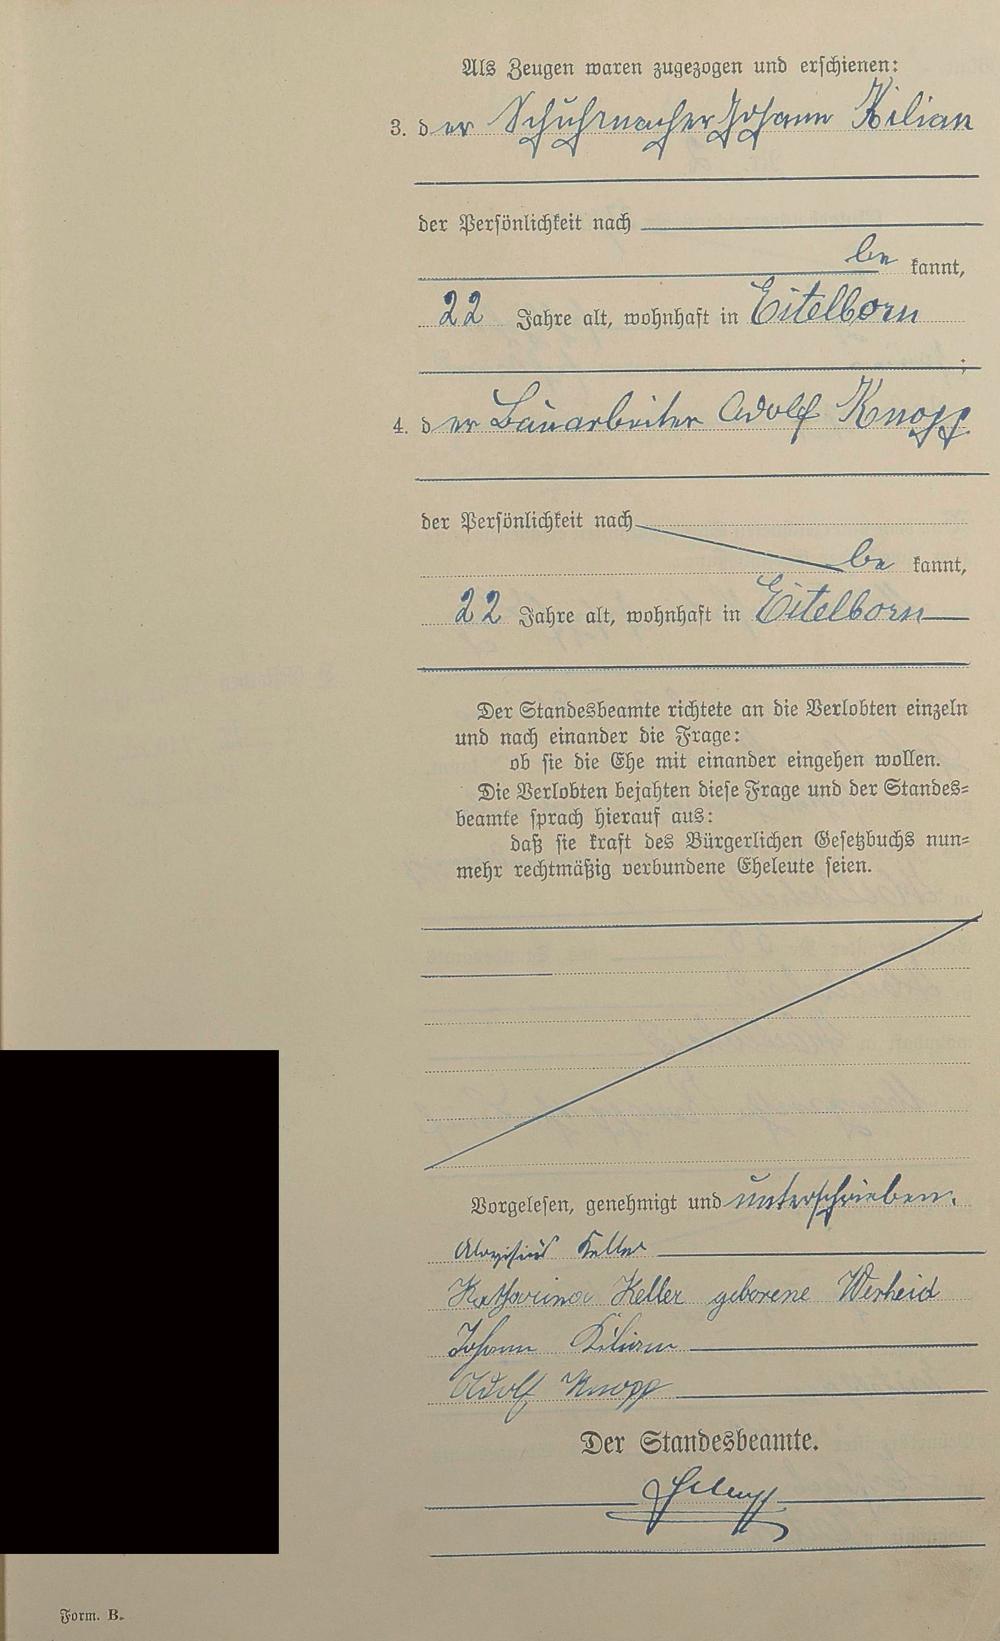 Als Zeugen waren zugezogen und erschienen:
3. der Schuhmacher Johann Kilian
der Persönlichkeit nach
be kannt,
22 Jahre alt, wohnhaft in Eitelborn
;
4. der Bauarbeiter Adolf Knopp
der Persönlichkeit nach
be kannt,
22 Jahre alt, wohnhaft in Eitelborn
Der Standesbeamte richtete an die Verlobten einzeln
und nach einander die Frage:
ob sie die Ehe mit einander eingehen wollen.
Die Verlobten bejahten diese Frage und der Standes-
beamte sprach hierauf aus:
daß sie kraft des Bürgerlichen Gesetzbuchs nun-
mehr rechtmäßig verbundene Eheleute seien.
Vorgelesen, genehmigt und unterschrieben.
Aloysius Keller
Katharina Keller geborene Werheid
Johann Kilian
Adolf Knopp
Der Standesbeamte.
Form. B.